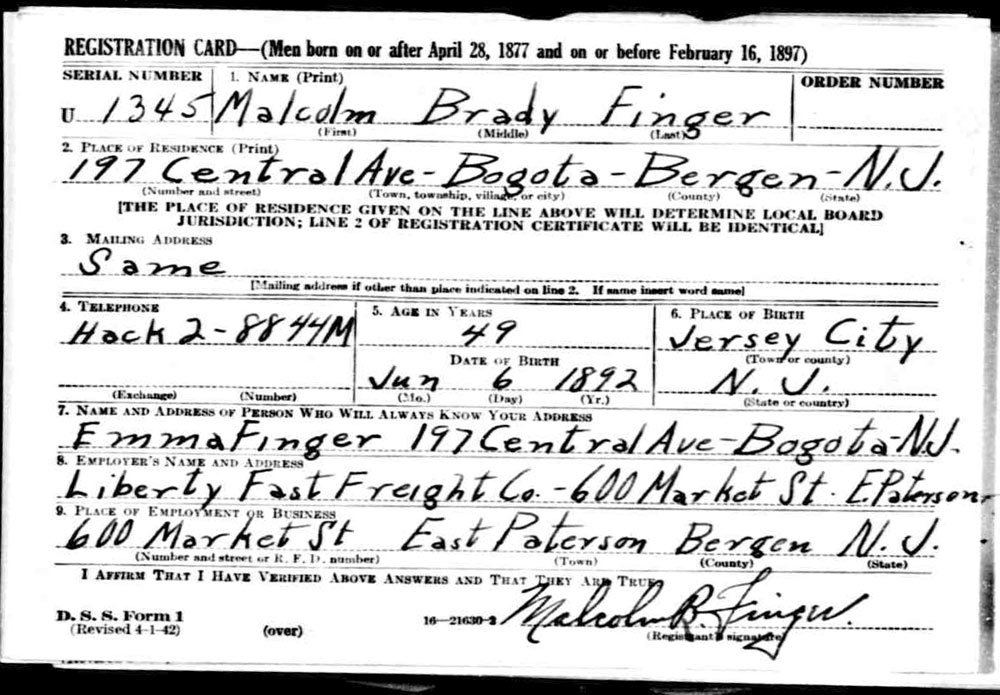 REGISTRATION CARD—(Men born on or after April 28, 1877 and on or before February 16, 1897)
SERIAL NUMBER
1. NAME (Print)
ORDER NUMBER
U 1345 Malcolm Brady Finger
(First) (Middle) (Last)
2. PLACE OF RESIDENCE (Print)
197 Central Ave - Bogota - Bergen - N.J.
(Number and street) (Town, township, village, or city) (County) (State)
[THE PLACE OF RESIDENCE GIVEN ON THE LINE ABOVE WILL DETERMINE LOCAL BOARD
JURISDICTION; LINE 2 OF REGISTRATION CERTIFICATE WILL BE IDENTICAL]
3. MAILING ADDRESS
Same
[Mailing address if other than place indicated on line 2. If same insert word same]
4. TELEPHONE
5. AGE IN YEARS
6. PLACE OF BIRTH
Hack 2-8844M
49
Jersey City
(Town or county)
DATE OF BIRTH
Jun 6 1892
N. J.
(Exchange) (Number)
(Mo.) (Day) (Yr.)
(State or country)
7. NAME AND ADDRESS OF PERSON WHO WILL ALWAYS KNOW YOUR ADDRESS
Emma Finger 197 Central Ave - Bogota - N.J.
8. EMPLOYER'S NAME AND ADDRESS
Liberty Fast Freight Co. - 600 Market St. E. Paterson
9. PLACE OF EMPLOYMENT OR BUSINESS
600 Market St East Paterson Bergen N. J.
(Number and street or R. F. D. number) (Town) (County) (State)
I AFFIRM THAT I HAVE VERIFIED ABOVE ANSWERS AND THAT THEY ARE TRUE.
D. S. S. Form 1
(Revised 4-1-42)
(over)
16—21630-2
Malcolm B. Finger.
(Registrant's signature)